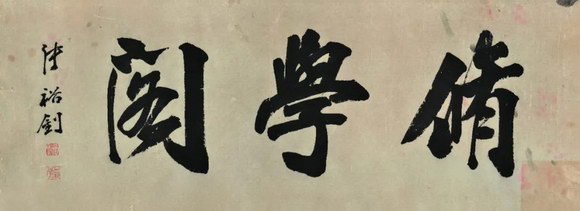 脩學閣
張裕釗